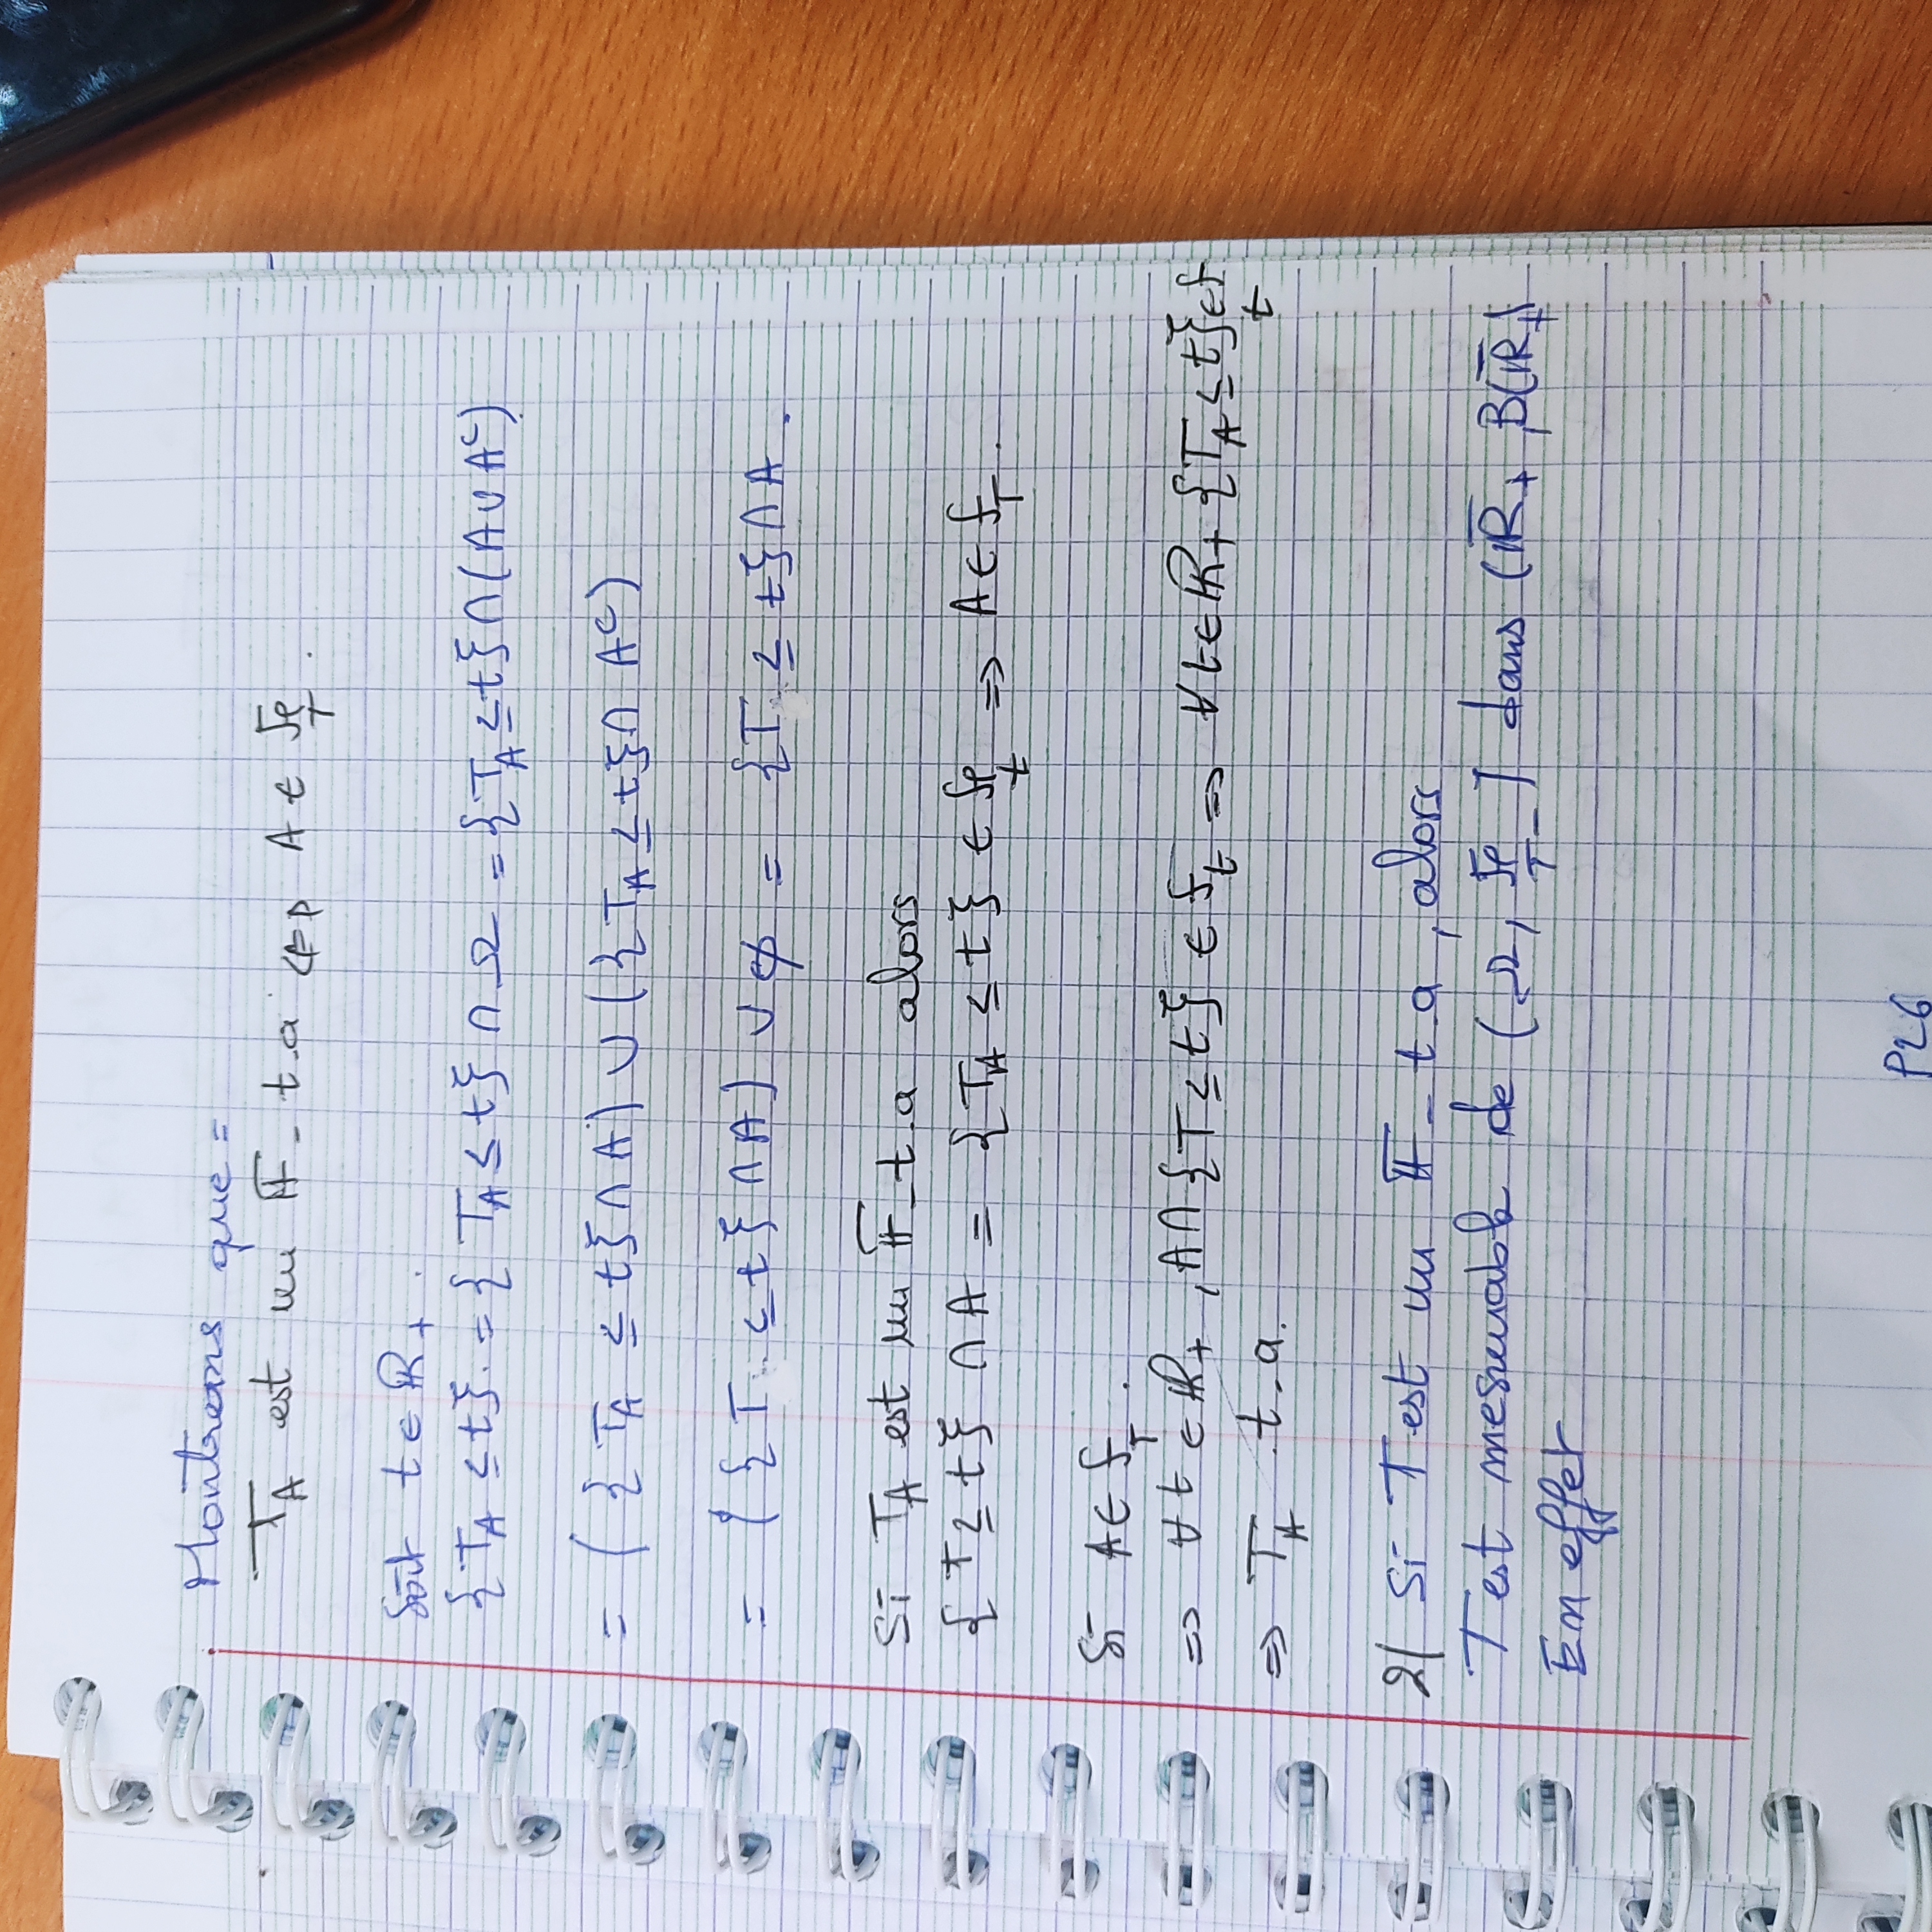 Montrons que =
T_A est un 𝔽 - t.a ⇔ A ∈ ℱ_T .
Soit t ∈ ℝ_+ .
{T_A ≤ t} = {T_A ≤ t} ∩ Ω = {T_A ≤ t} ∩ (A ∪ A^c)
= ({T_A ≤ t} ∩ A) ∪ ({T_A ≤ t} ∩ A^c)
= ({T ≤ t} ∩ A) ∪ ∅ = {T ≤ t} ∩ A .
Si T_A est un 𝔽 - t.a alors
{T ≤ t} ∩ A = {T_A ≤ t} ∈ ℱ_t ⇒ A ∈ ℱ_T .
Si A ∈ ℱ_T .
⇒ ∀ t ∈ ℝ_+ , A ∩ {T ≤ t} ∈ ℱ_t ⇒ ∀ t ∈ ℝ_+ {T_A ≤ t} ∈ ℱ_t
⇒ T_A t.a.
2/ Si T est un 𝔽 - t.a , alors
T est mesurable de (Ω, ℱ_{T-}) dans (ℝ̄_+ , B(ℝ̄_+)
En effet
P26